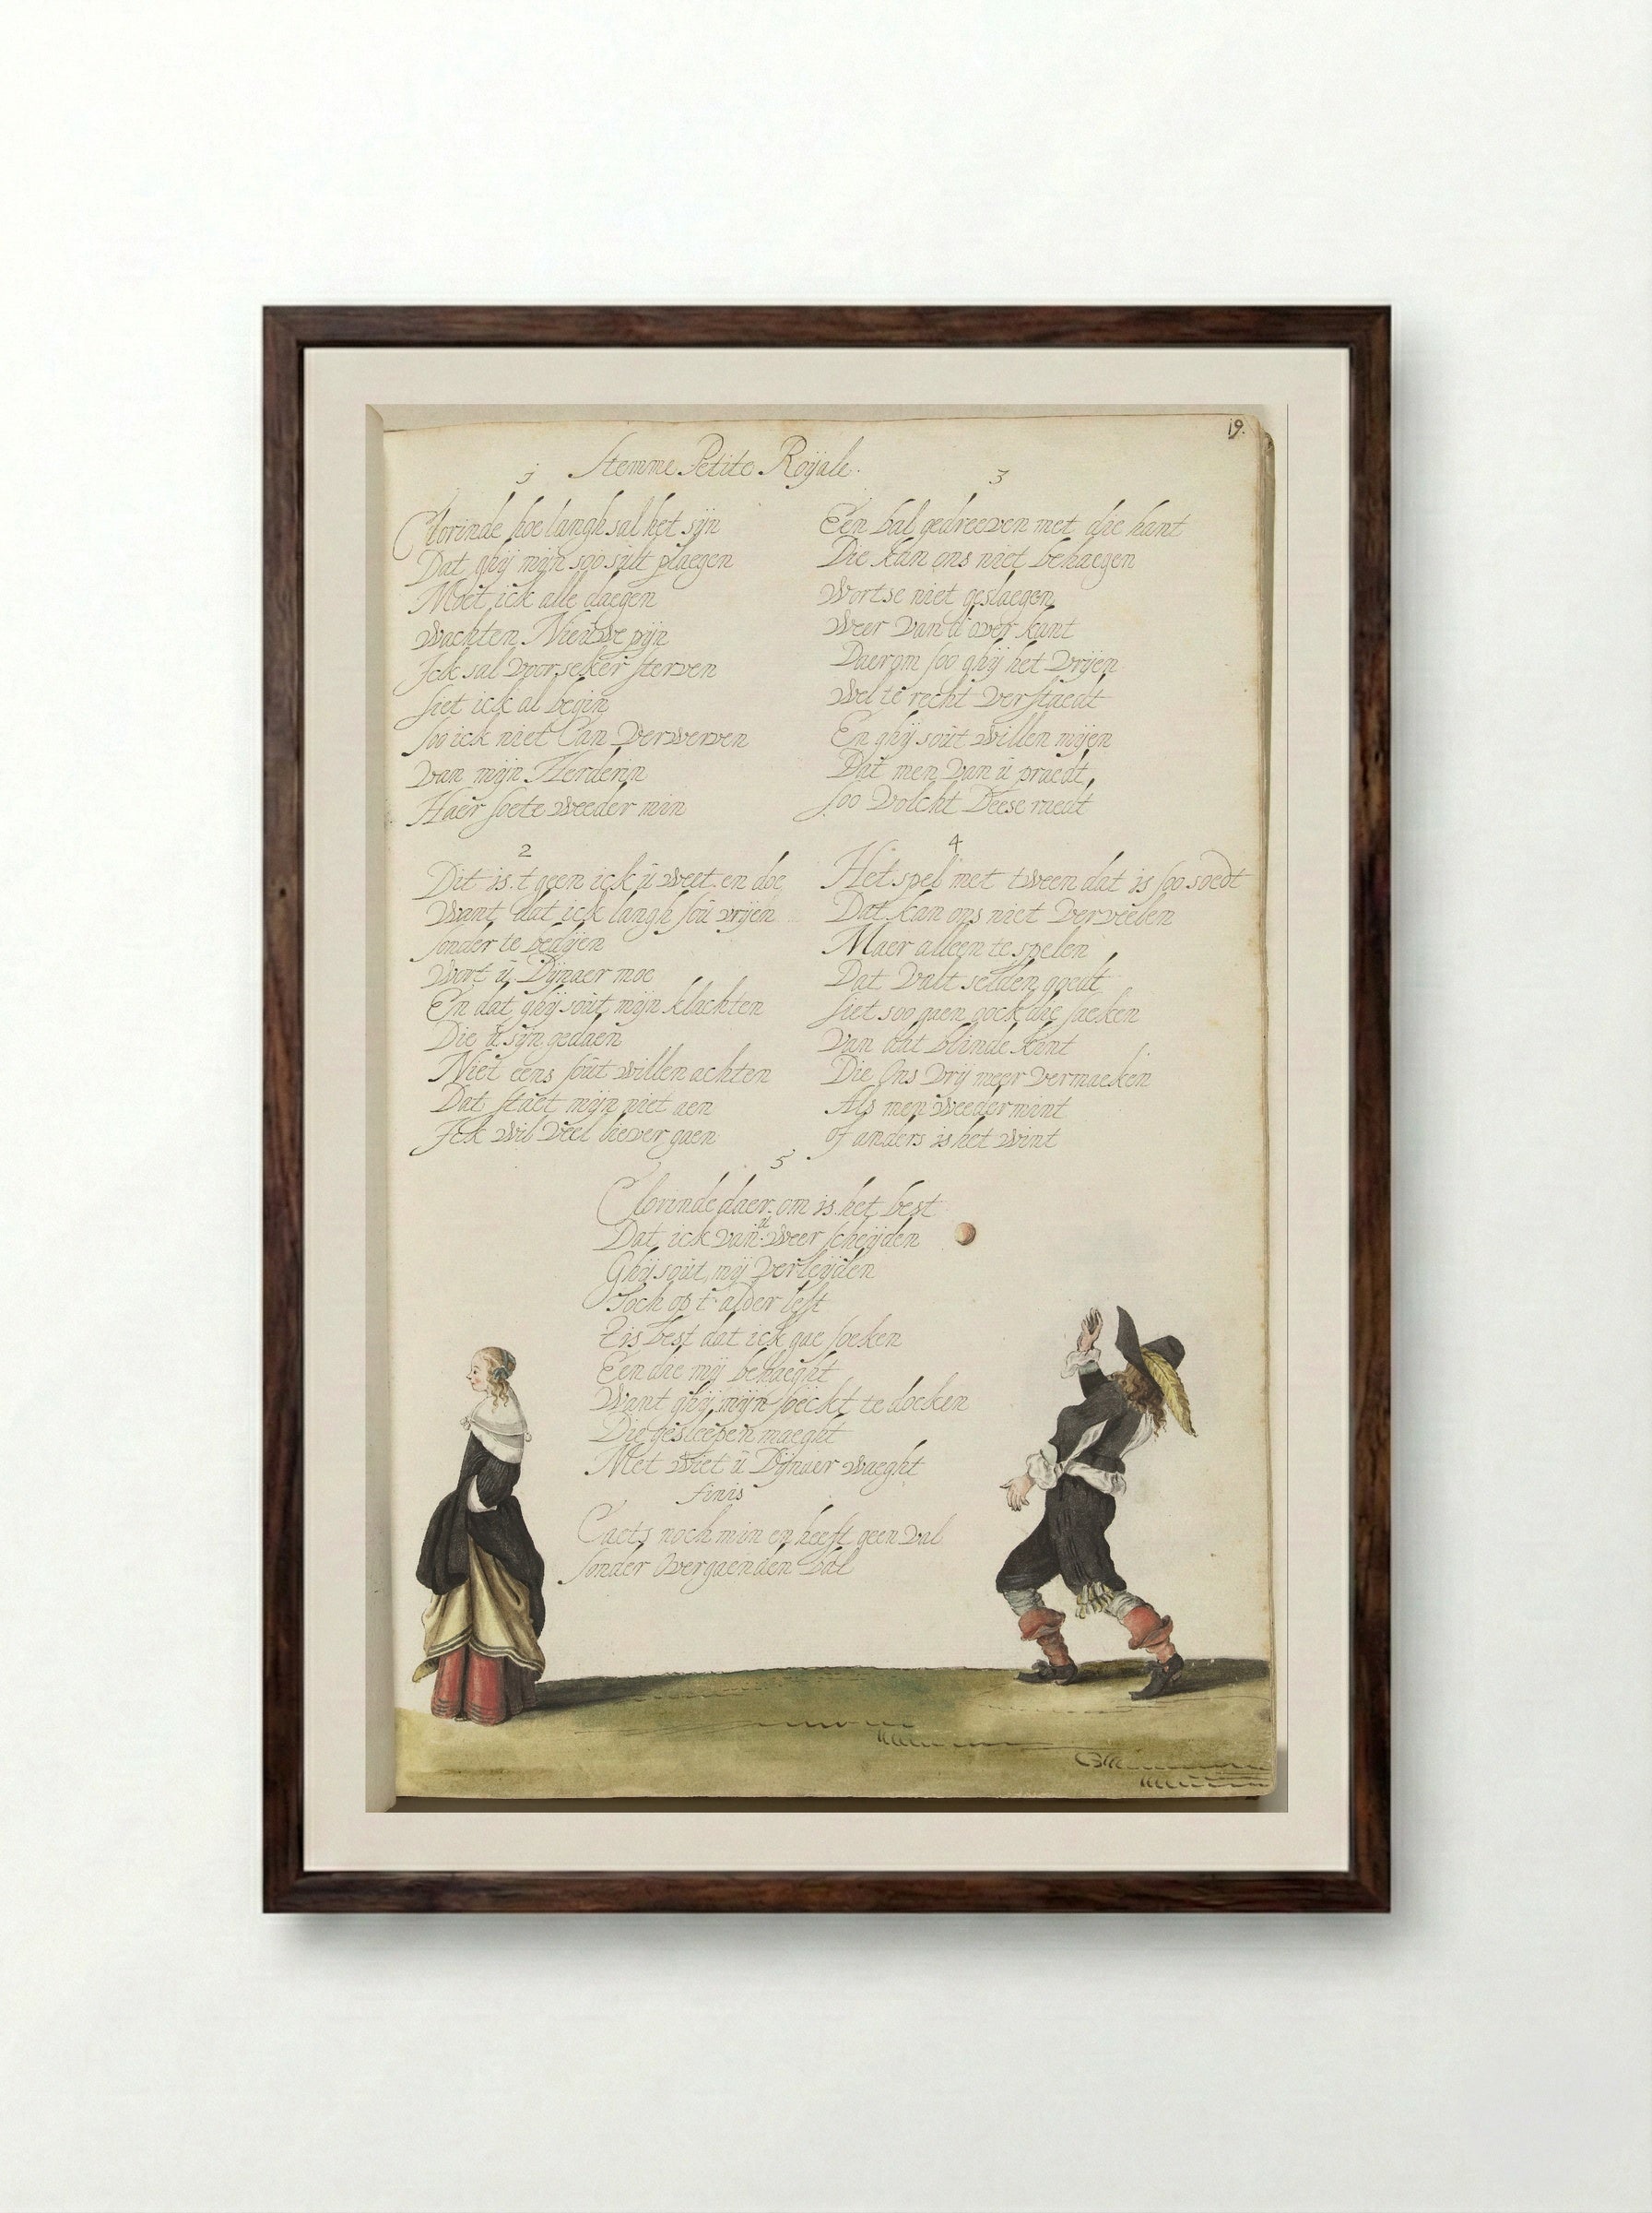 19.
Stemme Petite Roÿale.
1
Clorinde hoe langh sal het sÿn
Dat ghÿ mÿn soo sült plaegen
Moet ick alle daegen
Wachten Nieuwe pÿn
Ick sal voorseker sterven
Siet ick al begin
Soo ick niet Can Verwerven
Van mÿn Herderin
Haer soete weeder min
2
Dit is t geen ick ü weet en doe
Want dat ick langh soü vrÿen
Sonder te bedÿen
Wort ü Dÿnaer moe
En dat ghÿ soüt mÿn klachten
Die ü sÿn gedaen
Niet eens soüt willen achten
Dat staet mÿn niet aen
Ick wil veel liever gaen
3
Een bal gedreeven met die hant
Die kan ons niet behaegen
Wortse niet geslaegen
Weer van d'over kant
Daerom soo ghÿ het vrÿen
Wel te recht verstaedt
En ghÿ soüt willen mÿen
Dat men van ü praedt,
Soo Volcht Deese raedt
4
Het spel met tween dat is soo soedt
Dat kan ons niet verveelen
Maer alleen te spelen
Dat valt selden goedt
Siet soo gaen oock die saeken
Van dat blinde kint
Die Ons Vrÿ meer vermaeken
Als men weedermint
of anders is het wint
5
Clorinde daer om is het best
Dat ick van d weer scheÿden
Ghÿ soüt mÿ verleÿden
Toch op t alder lest
Tis best dat ick gae soeken
Een die mÿ behaeght
Want ghÿ mÿn soeckt te doeken
Die gesleepen maeght
Met Wiet ü Dÿnaer waeght
finis
Caets noch min en heeft geen val
Sonder Overgaenden bal